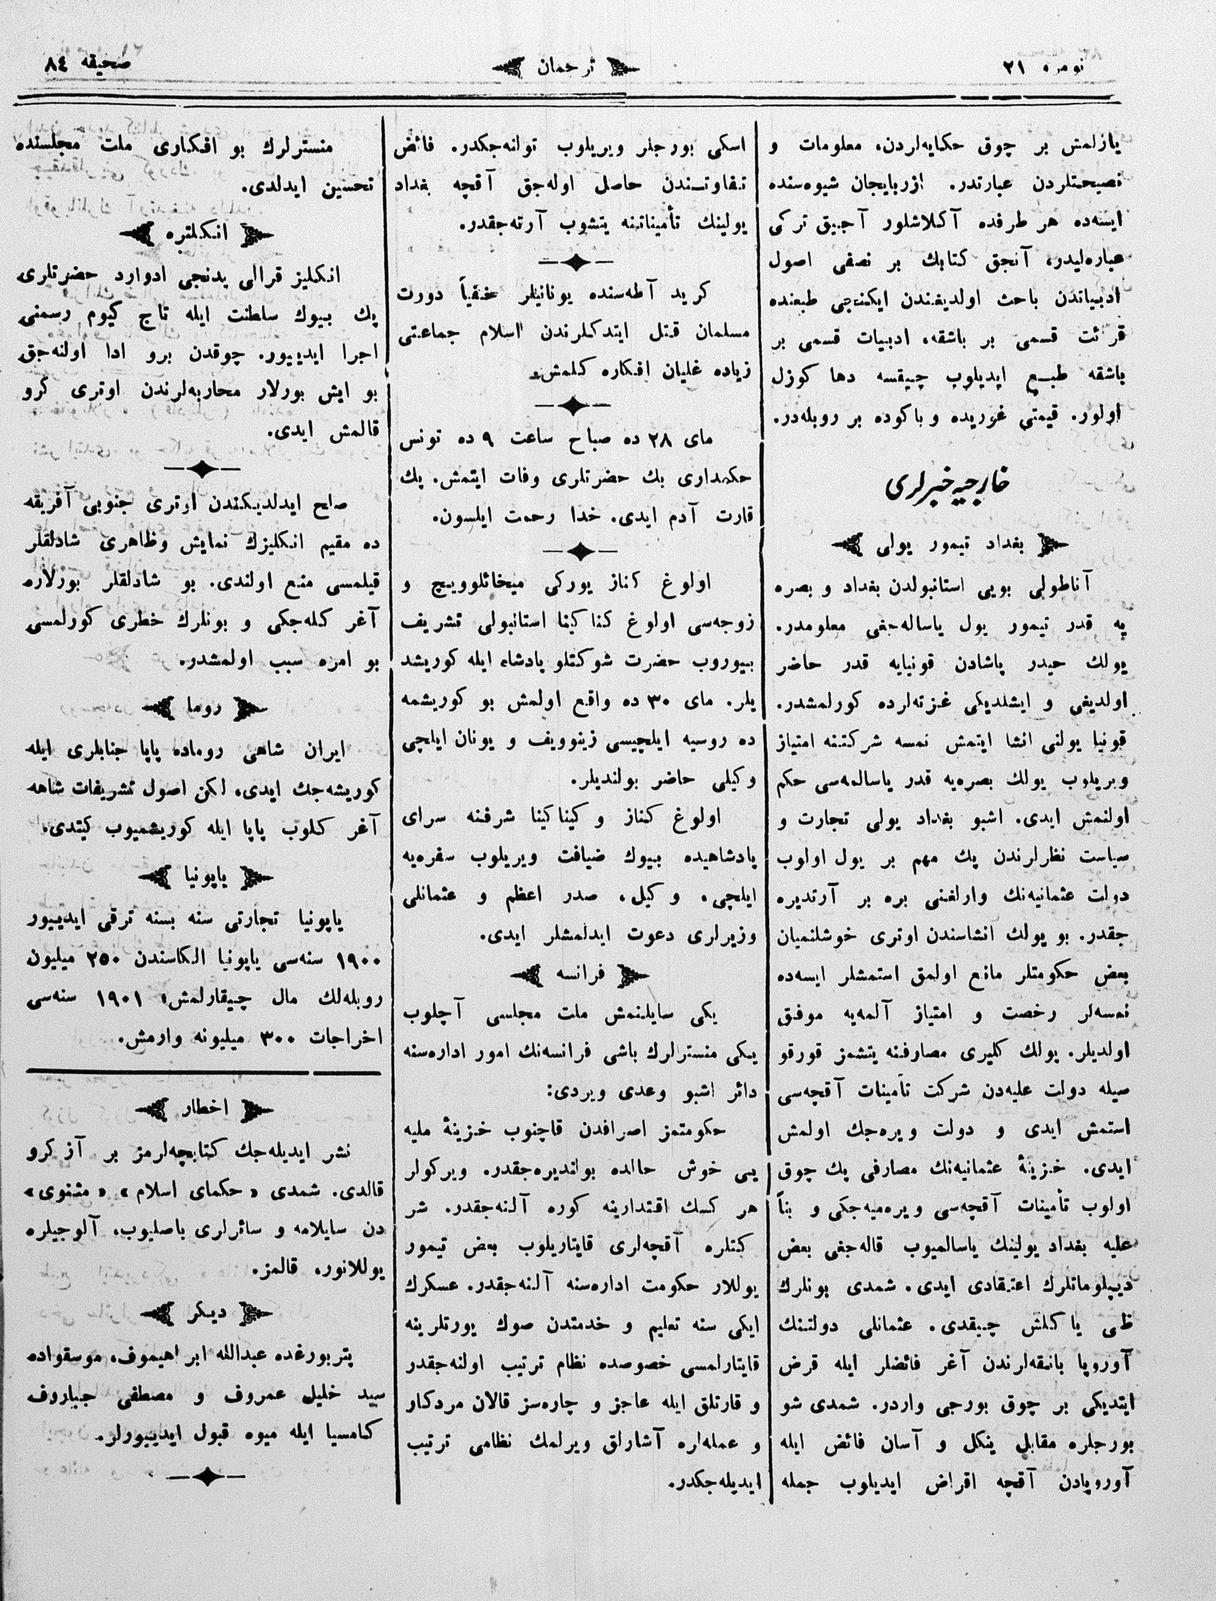 نومره ٢١
ترجمان
صحیفه ٨٤
یازلمش بر چوق حکایه‌لردن، معلومات و
نصیحتلردن عبارتدر. اذربایجان شیوه‌سنده
ایسه‌ده هر طرفده آکلاشلور آچیق ترکی
عباره‌لیدر، آنجق کتابك بر نصفی اصول
ادبیاتدن باحث اولدیغندن ایکنجی طبعنده
قرائت قسمی بر باشقه، ادبیات قسمی بر
باشقه طبع ایدیلوب چیقسه دها کوزل
اولور. قیمتی غوریده و باکوده بر روبله‌در.
خارجیه خبرلری
بغداد تیمور یولی
آناطولی بویی استانبولدن بغداد و بصره
یه قدر تیمور یول یاساله‌جغی معلومدر.
یولك حیدر پاشادن قونیایه قدر حاضر
اولدیغی و ایشلدیکی غزته‌لرده کورلمشدر.
قونیا یولنی انشا ایتمش نمسه شرکتنه امتیاز
ویریلوب یولك بصره‌یه قدر یاسالمه‌سی حکم
اولنمش ایدی. اشبو بغداد یولی تجارت و
سیاست نظرلرندن پك مهم بر یول اولوب
دولت عثمانیه‌نك وارلغنی بره بر آرتدیره
جقدر. بو یولك انشاسندن اوتری خوشلنمیان
بعض حکومتلر مانع اولمق استمشلر ایسه‌ده
نمسه‌لر رخصت و امتیاز آلمه‌یه موفق
اولدیلر. یولك کلیری مصارفنه یتشمز قورقو
سیله دولت علیه‌دن شرکت تأمینات آقچه‌سی
استمش ایدی و دولت ویره‌جك اولمش
ایدی. خزینهٔ عثمانیه‌نك مصارفی پك چوق
اولوب تأمینات آقچه‌سی ویره‌میه‌جکی و بناً
علیه بغداد یولینك یاسالمیوب قاله‌جغی بعض
دیپلوماتلرك اعتقادی ایدی. شمدی بونلرك
ظنی یاکلش چیقدی. عثمانلی دولتینك
آوروپا بانقه‌لرندن آغر فائضلر ایله قرض
ایتدیکی بر چوق بورجی واردر. شمدی شو
بورجلره مقابل ینکل و آسان فائض ایله
آوروپادن آقچه اقراض ایدیلوب جمله
اسکی بورجلر ویریلوب توانه‌جکدر. فائض
تفاوتندن حاصل اوله‌جق آقچه بغداد
یولینك تأمیناتینه یتشوب آرته‌جقدر.
کرید آطه‌سنده یونانیلر خفیاً دورت
مسلمان قتل ایتدکلرندن اسلام جماعتی
زیاده غلیان افکاره کلمش.
مای ٢٨ ده صباح ساعت ٩ ده تونس
حکمداری بك حضرتلری وفات ایتمش. پك
قارت آدم ایدی. خدا رحمت ایلسون.
اولوغ کناز یورکی میخائلوویچ و
زوجه‌سی اولوغ کناکینا استانبولی تشریف
بیوروب حضرت شوکتلو پادشاه ایله کوریشد
یلر. مای ٣٠ ده واقع اولمش بو کوریشمه
ده روسیه ایلچیسی زینوویف و یونان ایلچی
وکیلی حاضر بولندیلر.
اولوغ کناز و کیناکینا شرفنه سرای
پادشاهیده بیوك ضیافت ویریلوب سفره‌یه
ایلچی، وکیل، صدر اعظم و عثمانلی
وزیرلری دعوت ایدلمشلر ایدی.
فرانسه
یکی سایلنمش ملت مجلسی آچلوب
یکی منسترلرك باشی فرانسه‌نك امور اداره‌سنه
دائر اشبو وعدی ویردی:
حکومتمز اصرافدن قاچنوب خزینهٔ ملیه
یی خوش حالده بولندیره‌جقدر. ویرکولر
هر کسك اقتدارینه کوره آلنه‌جقدر. شر
کتلره آقچه‌لری قایتاریلوب بعض تیمور
یوللار حکومت اداره‌سنه آلنه‌جقدر. عسکرك
ایکی سنه تعلیم و خدمتدن صوك یورتلرینه
قایتارلمسی خصوصده نظام ترتیب اولنه‌جقدر
و قارتلق ایله عاجز و چاره‌سز قالان مردکار
و عمله‌لره آشارلق ویرلمك نظامی ترتیب
ایدیله‌جکدر.
منسترلرك بو افکاری ملت مجلسنده
تحسین ایدلدی.
انکلتره
انکلیز قرالی یدنجی ادوارد حضرتلری
پك بیوك سلطنت ایله تاج کیوم رسمنی
اجرا ایدییور. چوقدن برو ادا اولنه‌جق
بو ایش بورلار محاربه‌لرندن اوتری کرو
قالمش ایدی.
صلح ایدلدیکندن اوتری جنوبی آفریقه
ده مقیم انکلیزك نمایش وظاهری شادلقلر
قیلمسی منع اولندی. بو شادلقلر بورلاره
آغر کله‌جکی و بونلرك خطری کورلمسی
بو امره سبب اولمشدر.
روما
ایران شاهی روماده پاپا جنابلری ایله
کوریشه‌جك ایدی، لکن اصول تشریفات شاهه
آغر کلوب پاپا ایله کوریشمیوب کیتدی.
یاپونیا
یاپونیا تجارتی سنه بسنه ترقی ایدییور
١٩٠٠ سنه‌سی یاپونیا الکاسندن ٢٥٠ میلیون
روبله‌لك مال چیقارلمش، ١٩٠١ سنه‌سی
اخراجات ٣٠٠ میلیونه وارمش.
اخطار
نشر ایدیله‌جك کتابچه‌لرمز بر آز کرو
قالدی. شمدی «حکمای اسلام» «مثنوی»
دن سایلامه و سائرلری باصلیوب، آلوجیلره
یوللانور، قالمز.
دیکر
پتربورغده عبدالله ابراهیموف، موسقواده
سید خلیل عمروف و مصطفی جباروف
کامسیا ایله میوه قبول ایدییورلر.